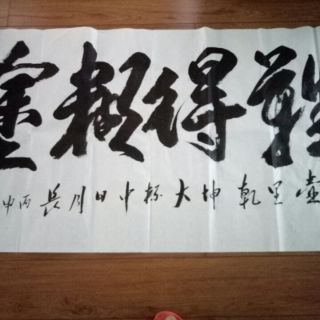 難得糊塗
壺里乾坤大杯中日月長丙申